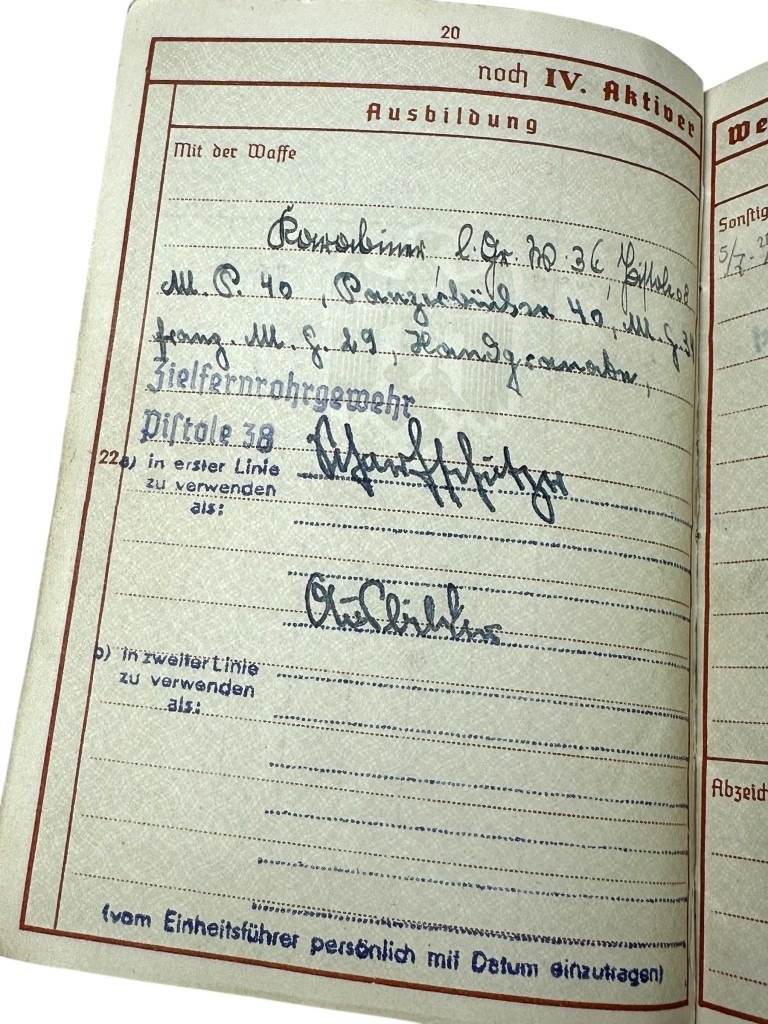 20
noch IV. Aktiver
Ausbildung
Mit der Waffe
Karabiner l. Gr. W. 36 Pistole 08
M. P. 40, Panzerbüchse 40, M. G. 34
franz. M. G. 29, Handgranaten,
Zielfernrohrgewehr
Pistole 38
22a) in erster Linie Scharfschütze
zu verwenden
als:
Ausbilder
b) in zweiter Linie
zu verwenden
als:
(vom Einheitsführer persönlich mit Datum einzutragen)
We
Sonstig
5/7.
Abzeich